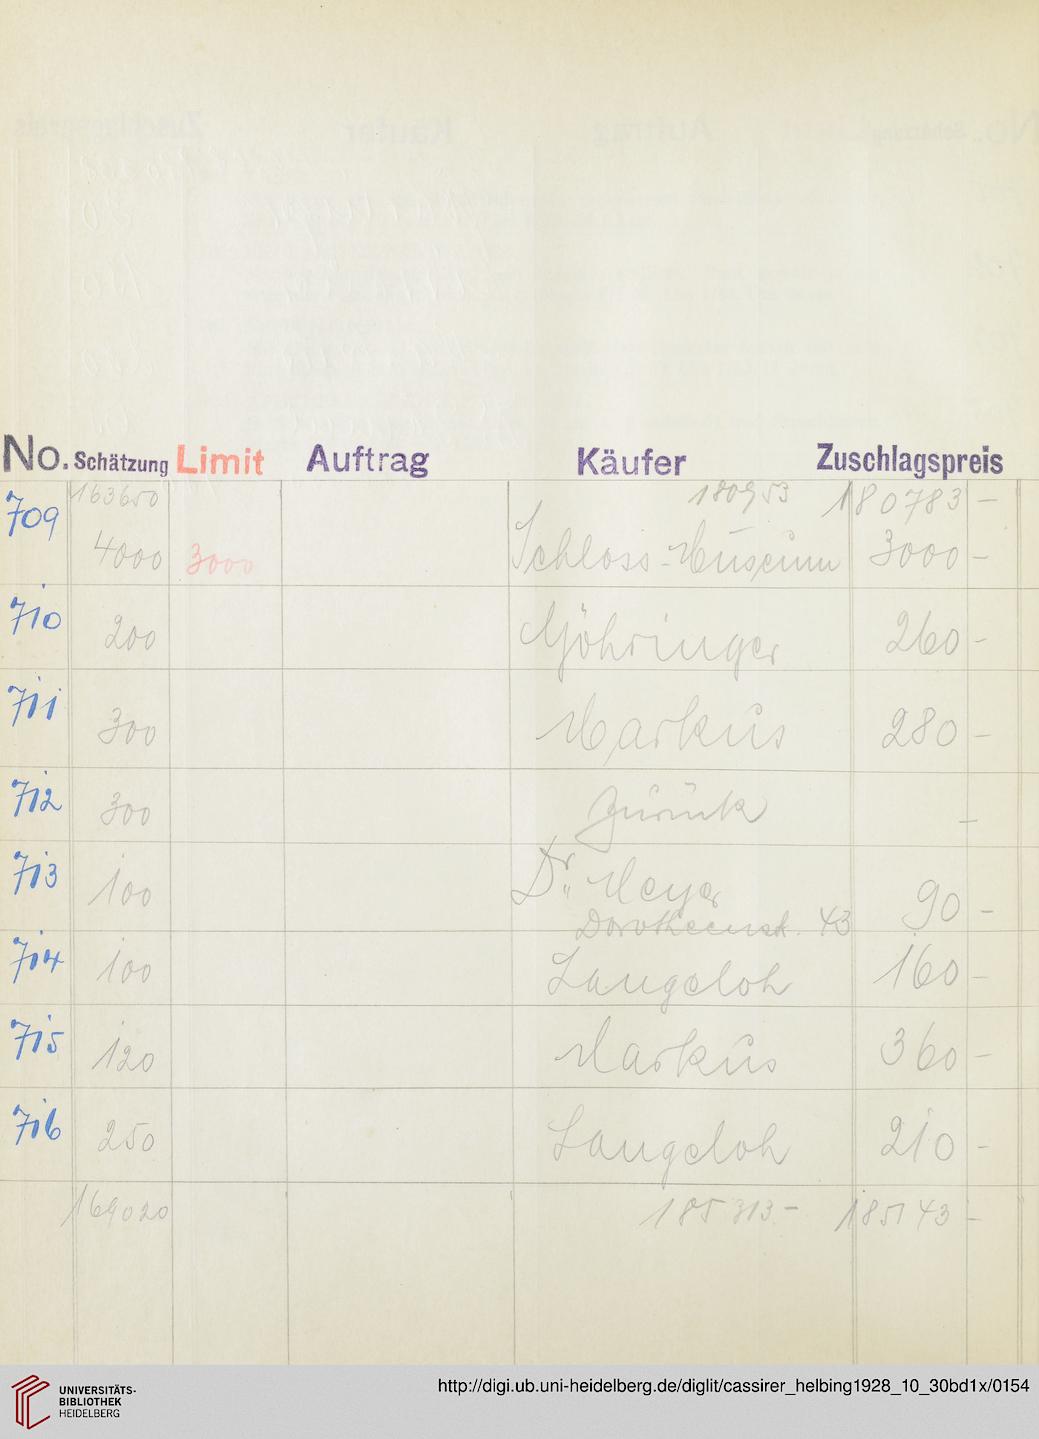 No. Schätzung Limit Auftrag Käufer Zuschlagspreis
163650 180953 180783 -
709 4000 3000 Schloss-Museum 3000 -
710 200 Möhringer 260 -
711 300 Markus 280 -
712 300 Zurück -
713 100 Dr. Meyer 90 -
Dorotheenst. 43
714 100 Langeloh 160 -
715 120 Markus 360 -
716 250 Langeloh 210 -
169020 185313 - 185143 -
UNIVERSITÄTS-
BIBLIOTHEK
HEIDELBERG
http://digi.ub.uni-heidelberg.de/diglit/cassirer_helbing1928_10_30bd1x/0154